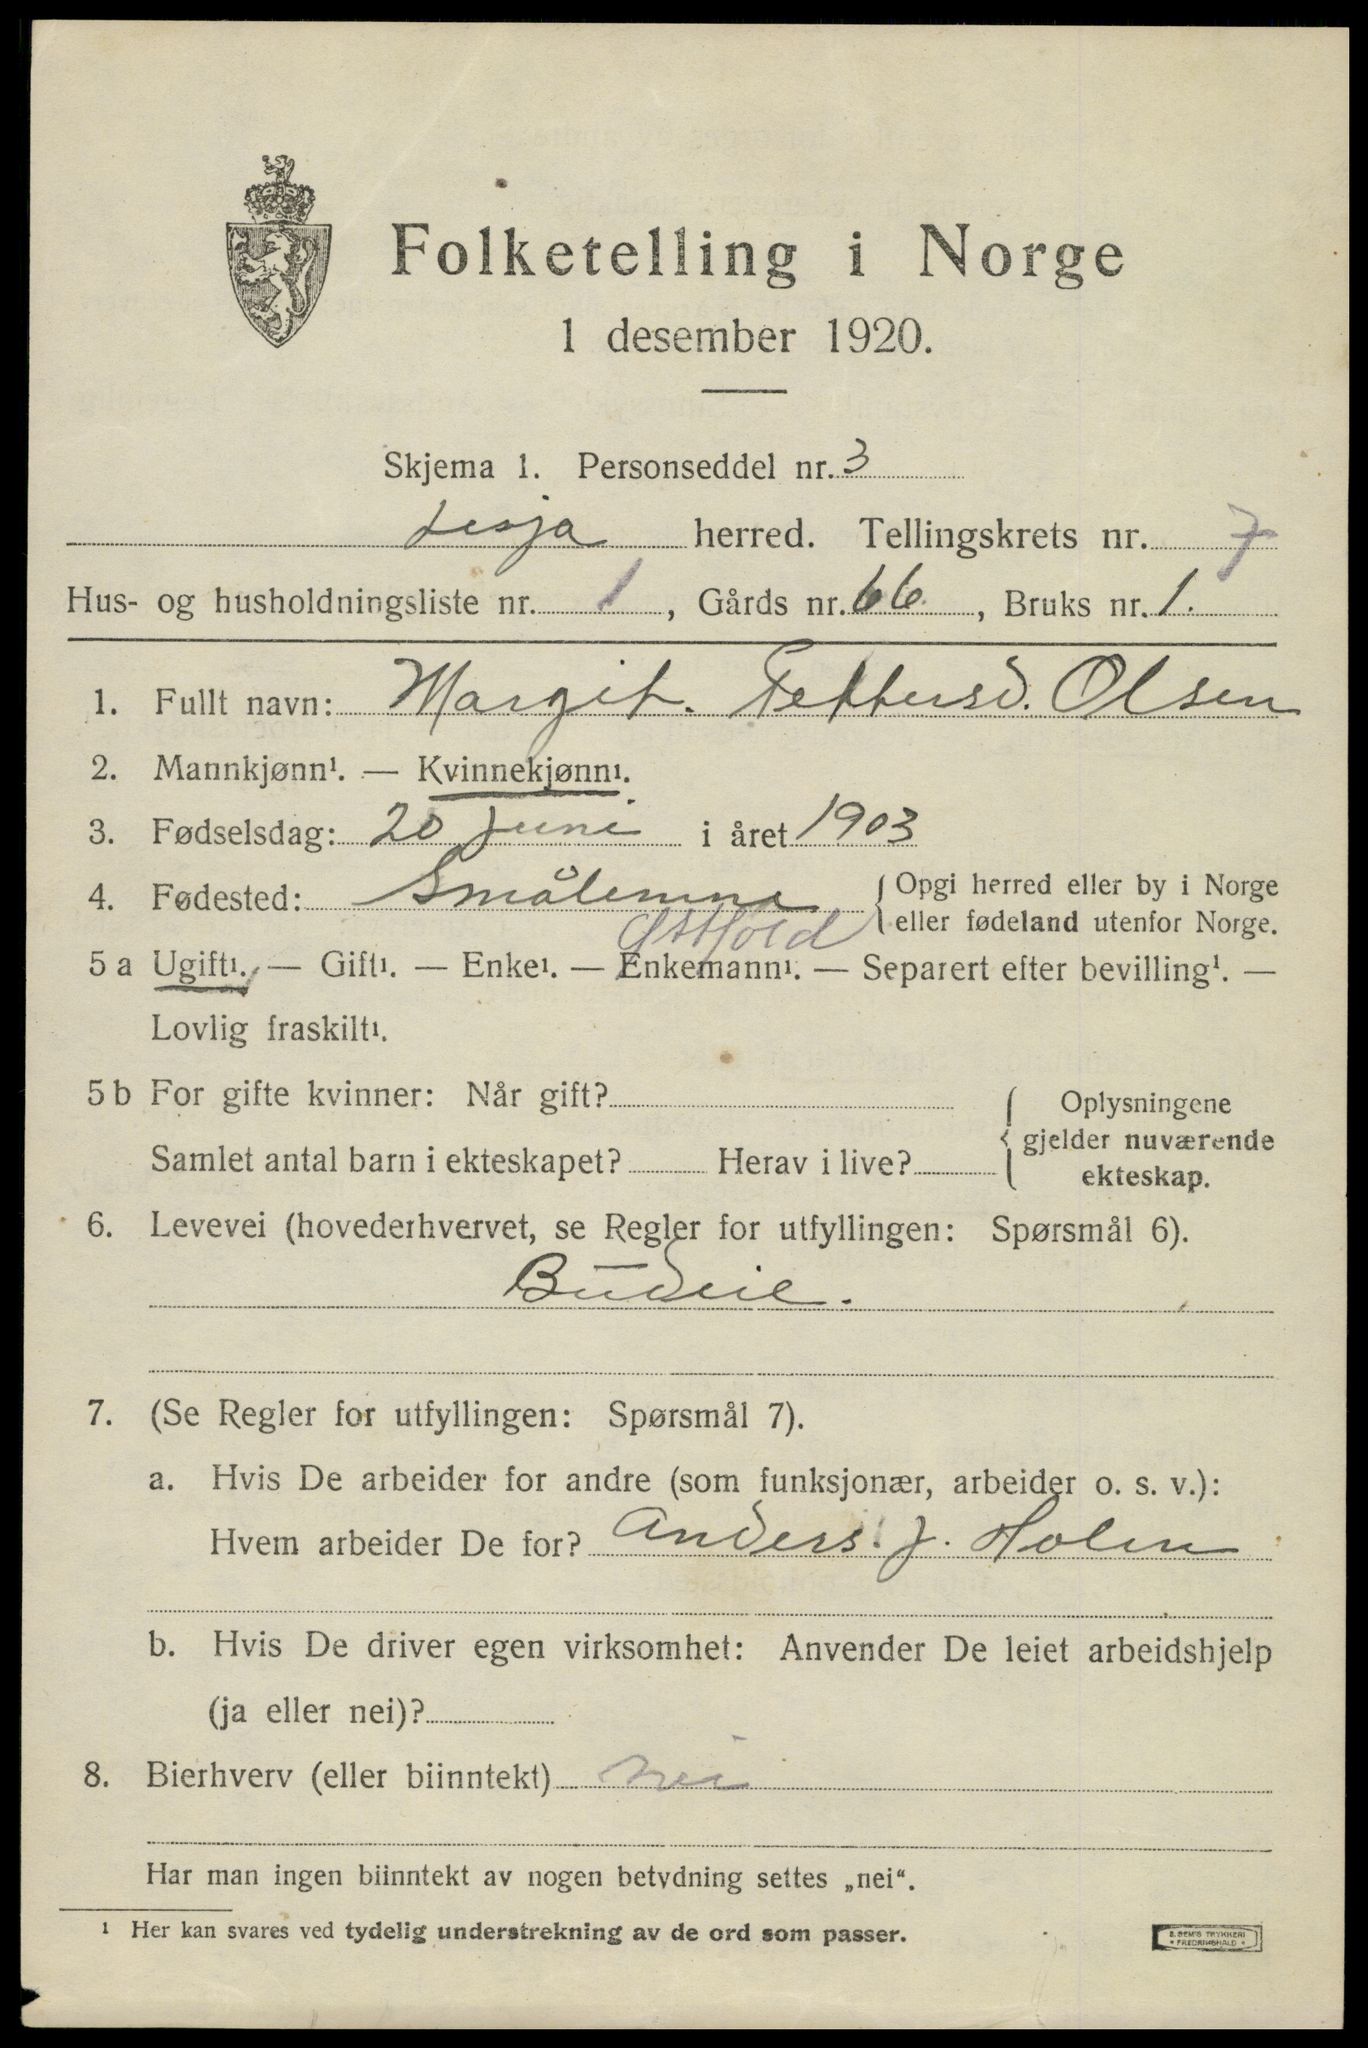 Folketelling i Norge
1 desember 1920.
Skjema 1. Personseddel nr. 3
Lesja herred. Tellingskrets nr. 7
Hus- og husholdningsliste nr. 1, Gårds nr. 66, Bruks nr. 1.
1. Fullt navn: Margit. Olsen
2. Mannkjønn¹. — Kvinnekjønn¹.
3. Fødselsdag: 20 Juni i året 1903
4. Fødested: Smålenene { Opgi herred eller by i Norge
eller fødeland utenfor Norge.
Østfold
5 a Ugift¹. — Gift¹. — Enke¹. — Enkemann¹. — Separert efter bevilling¹. —
Lovlig fraskilt¹.
5 b For gifte kvinner: Når gift? { Oplysningene
gjelder nuværende
Samlet antal barn i ekteskapet? Herav i live? ekteskap.
6. Levevei (hovederhvervet, se Regler for utfyllingen: Spørsmål 6).
Budeie.
7. (Se Regler for utfyllingen: Spørsmål 7).
a. Hvis De arbeider for andre (som funksjonær, arbeider o. s. v.):
Hvem arbeider De for? Anders. J. Holen
b. Hvis De driver egen virksomhet: Anvender De leiet arbeidshjelp
(ja eller nei)?
8. Bierhverv (eller biinntekt) nei
Har man ingen biinntekt av nogen betydning settes „nei“.
¹ Her kan svares ved tydelig understrekning av de ord som passer.
E. SEM'S TRYKKERI
• FREDRIKSHALD •